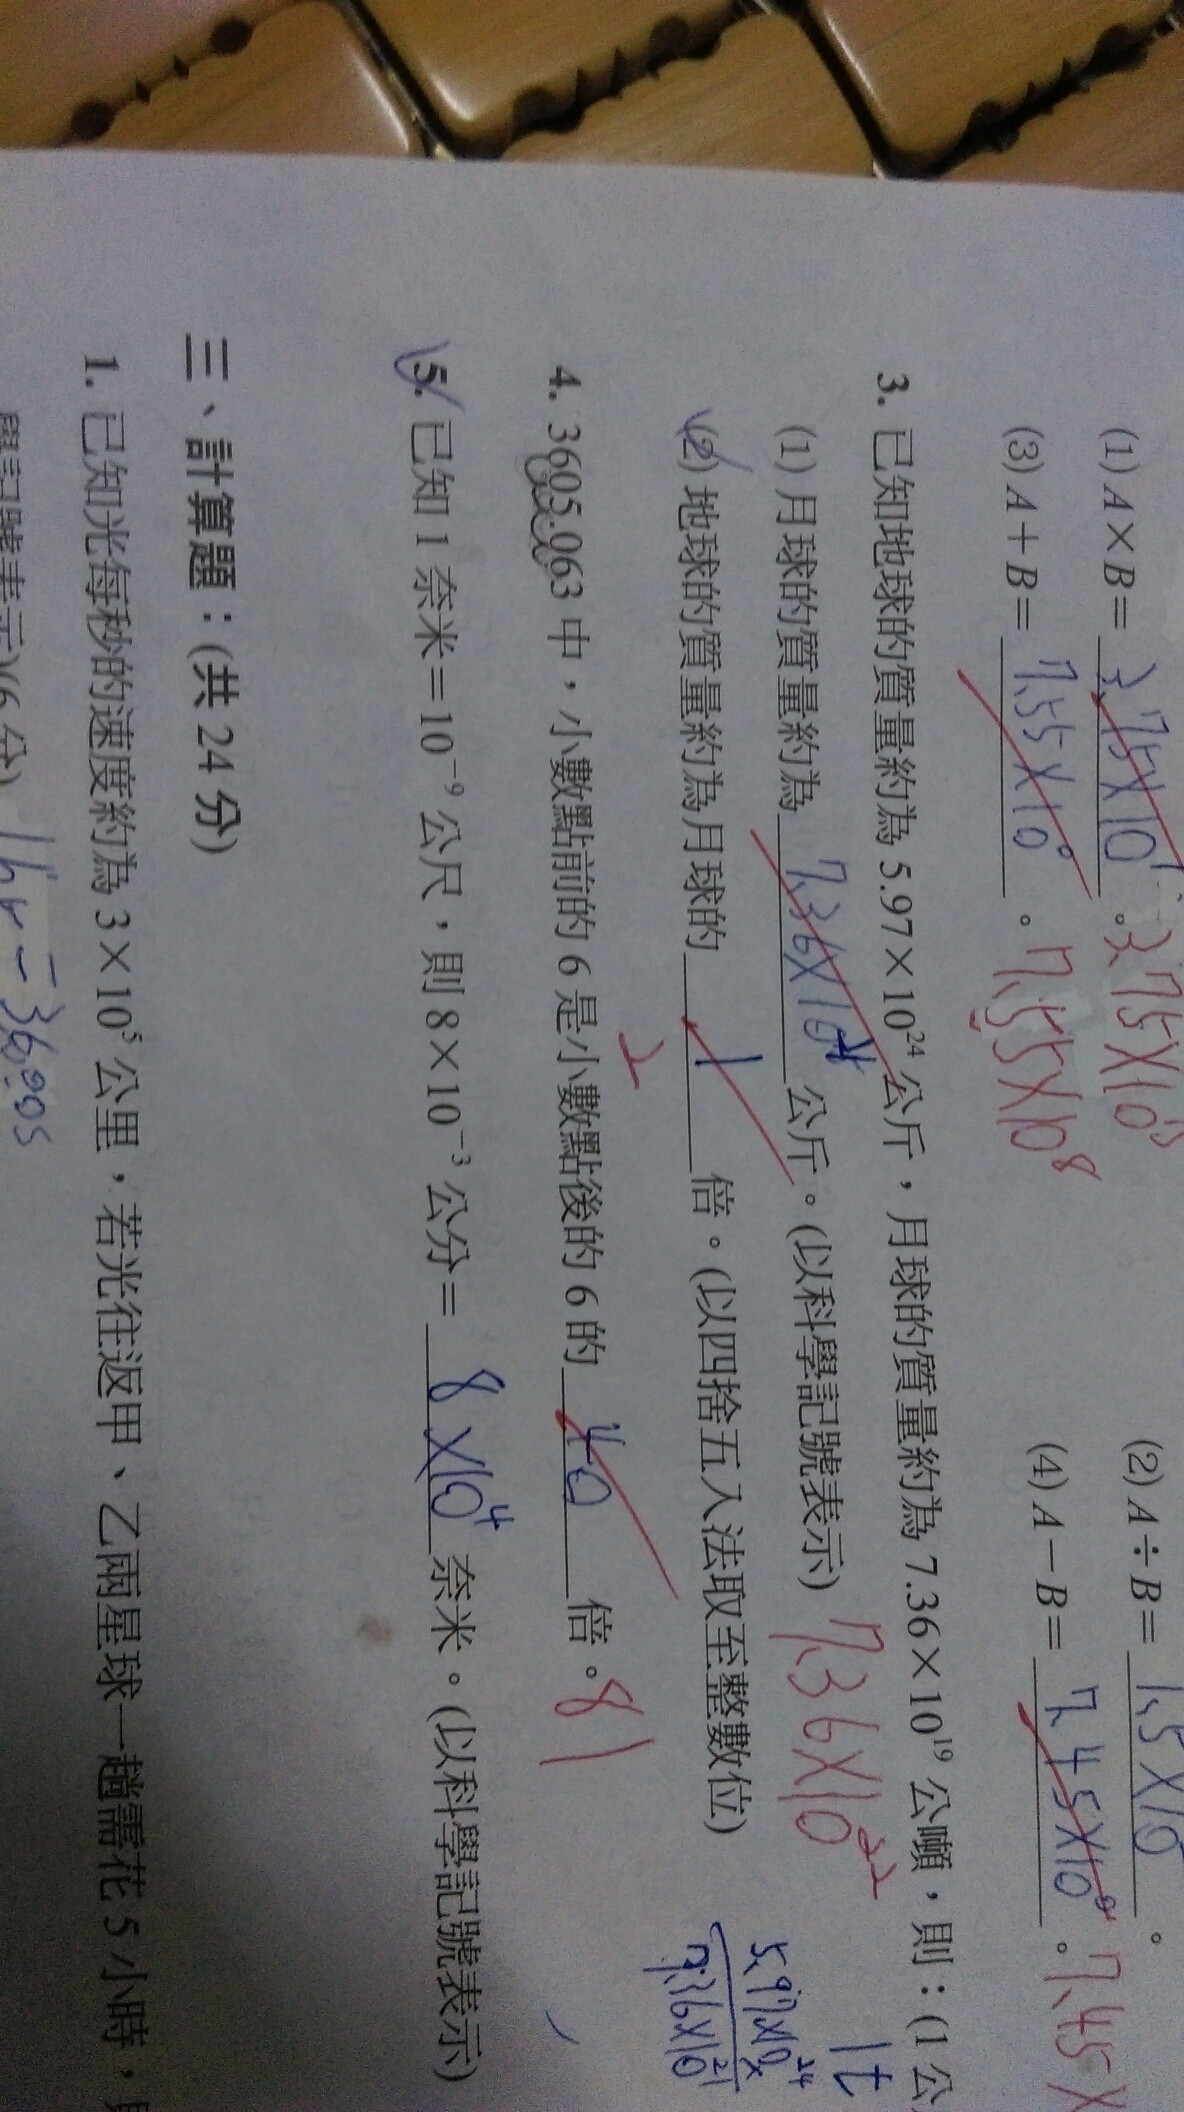 (1) A×B= 3.75×10 。 3.75×10 (2) A÷B= 1.5×10 。
(3) A+B= 7.55×10⁹ 。 7.55×10⁸ (4) A-B= 7.45×10⁹ 。 7.45×
3. 已知地球的質量約為 5.97×10²⁴ 公斤,月球的質量約為 7.36×10¹⁹ 公噸,則:(1 公
(1) 月球的質量約為 7.36×10 公斤。(以科學記號表示) 7.36×10²² 1t
(2) 地球的質量約為月球的 1 倍。(以四捨五入法取至整數位) 81
5.97×10²⁴
7.36×10²¹
4. 3605.063 中,小數點前的 6 是小數點後的 6 的 倍。
2
5. 已知 1 奈米=10⁻⁹ 公尺,則 8×10⁻³ 公分= 8×10⁴ 奈米。(以科學記號表示)
三、計算題:(共 24 分)
1. 已知光每秒的速度約為 3×10⁵ 公里,若光往返甲、乙兩星球一趟需花 5 小時,
學記號表示)(6 分) 1hr=3600s